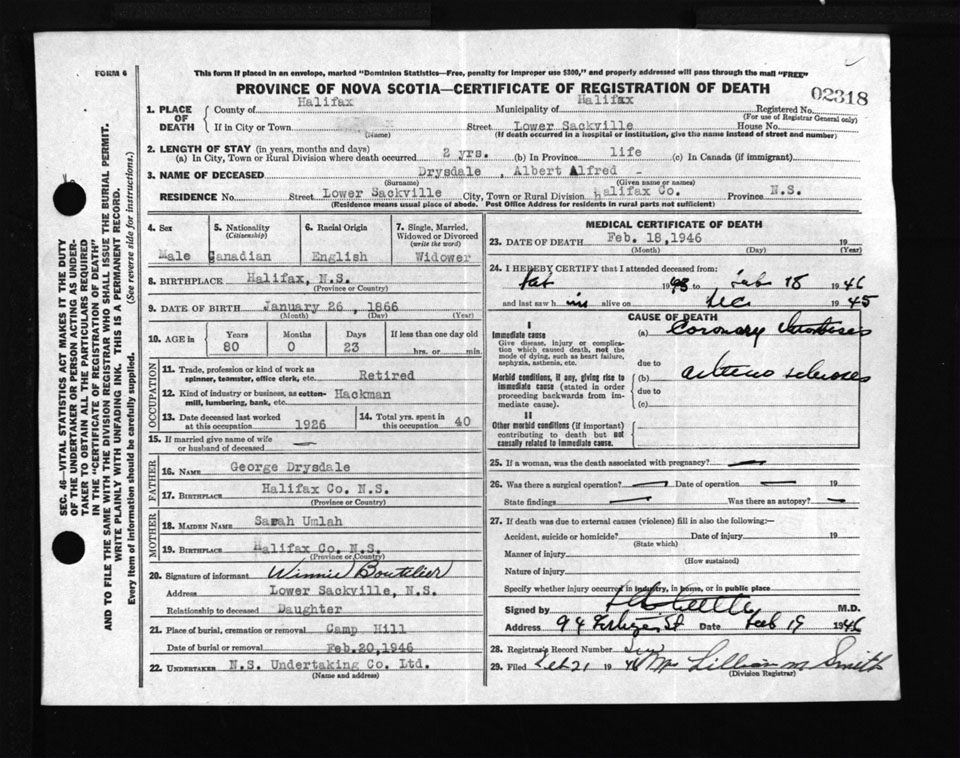 FORM 6
This form if placed in an envelope, marked "Dominion Statistics—Free, penalty for improper use $300," and properly addressed will pass through the mail "FREE"
PROVINCE OF NOVA SCOTIA—CERTIFICATE OF REGISTRATION OF DEATH
02318
1. PLACE OF DEATH
County of Halifax Municipality of Halifax Registered No.
(For use of Registrar General only)
If in City or Town Street Lower Sackville House No.
(Name) (If death occurred in a hospital or institution, give the name instead of street and number)
2. LENGTH OF STAY (in years, months and days)
(a) In City, Town or Rural Division where death occurred 2 yrs. (b) In Province life (c) In Canada (if immigrant)
3. NAME OF DECEASED Drysdale , Albert Alfred -
(Surname) (Given name or names)
RESIDENCE No. Street Lower Sackville City, Town or Rural Division Halifax Co. Province N.S.
(Residence means usual place of abode. Post Office Address for residents in rural parts not sufficient)
4. Sex Male
5. Nationality (Citizenship) Canadian
6. Racial Origin English
7. Single, Married, Widowed or Divorced (write the word) Widower
8. BIRTHPLACE Halifax, N.S.
(Province or Country)
9. DATE OF BIRTH January 26 , 1866
(Month) (Day) (Year)
10. AGE in
Years Months Days If less than one day old
80 0 23 hrs. or min.
OCCUPATION
11. Trade, profession or kind of work as spinner, teamster, office clerk, etc. Retired
12. Kind of industry or business, as cotton-mill, lumbering, bank, etc. Hackman
13. Date deceased last worked at this occupation 1926
14. Total yrs. spent in this occupation 40
15. If married give name of wife or husband of deceased —
FATHER
16. NAME George Drysdale
17. BIRTHPLACE Halifax Co. N.S.
(Province or Country)
MOTHER
18. MAIDEN NAME Sarah Umlah
19. BIRTHPLACE Halifax Co. N.S.
(Province or Country)
20. Signature of informant Winnie Boutilier
Address Lower Sackville, N.S.
Relationship to deceased Daughter
21. Place of burial, cremation or removal Camp Hill
Date of burial or removal Feb.20,1946
22. UNDERTAKER N.S. Undertaking Co. Ltd.
(Name and address)
MEDICAL CERTIFICATE OF DEATH
23. DATE OF DEATH Feb. 18,1946 19
(Month) (Day) (Year)
24. I HEREBY CERTIFY that I attended deceased from:
19 to Feb 18 1946
and last saw h im alive on Dec 1945
CAUSE OF DEATH
I
Immediate cause
Give disease, injury or complication which caused death, not the mode of dying, such as heart failure, asphyxia, asthenia, etc.
(a) Coronary
due to
Morbid conditions, if any, giving rise to immediate cause (stated in order proceeding backwards from immediate cause).
(b) arterio sclerosis
due to
(c)
II
Other morbid conditions (if important) contributing to death but not causally related to immediate cause.
25. If a woman, was the death associated with pregnancy? —
26. Was there a surgical operation? — Date of operation — 19
State findings — Was there an autopsy? —
27. If death was due to external causes (violence) fill in also the following:—
Accident, suicide or homicide? Date of injury 19
(State which)
Manner of injury
(How sustained)
Nature of injury
Specify whether injury occurred in industry, in home, or in public place
Signed by M.D.
Address 94 St Date Feb 19 1946
28. Registrar's Record Number
29. Filed Feb 21 19 46 Mrs Lillian M Smith
(Division Registrar)
SEC. 46—VITAL STATISTICS ACT MAKES IT THE DUTY
OF THE UNDERTAKER OR PERSON ACTING AS UNDER-
TAKER TO OBTAIN ALL THE PARTICULARS REQUIRED
IN THE "CERTIFICATE OF REGISTRATION OF DEATH"
AND TO FILE THE SAME WITH THE DIVISION REGISTRAR WHO SHALL ISSUE THE BURIAL PERMIT.
WRITE PLAINLY WITH UNFADING INK. THIS IS A PERMANENT RECORD.
Every item of information should be carefully supplied. (See reverse side for instructions.)